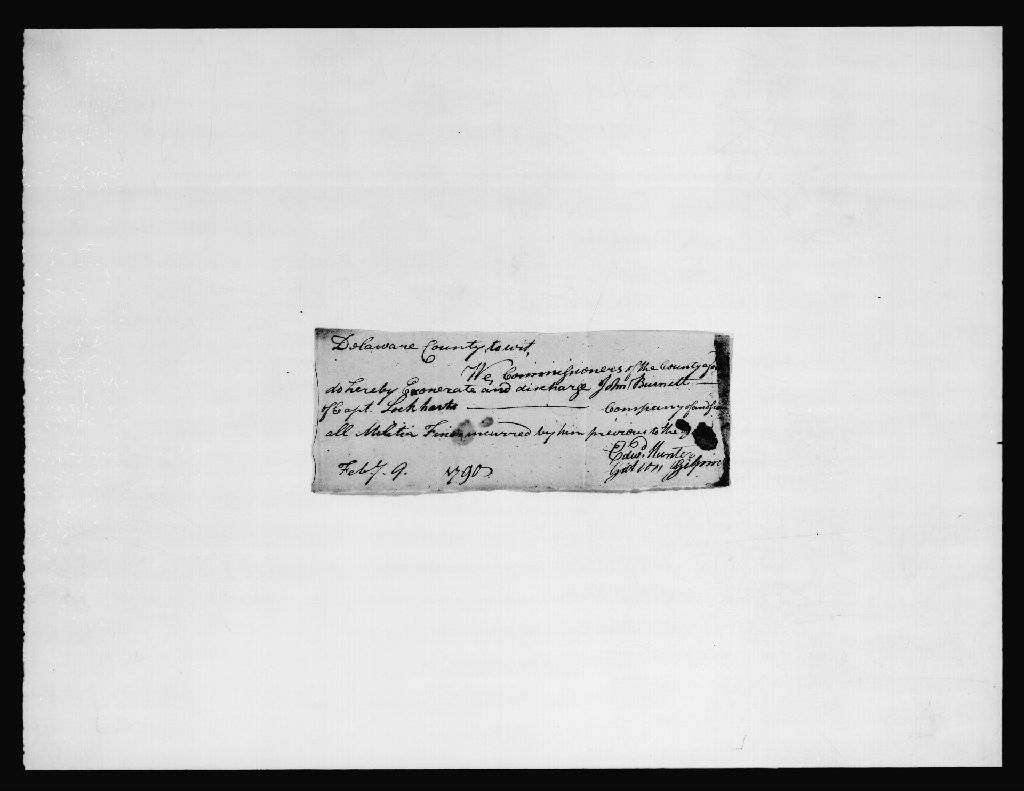 Delaware County to wit,
We, Commissioners of the County afs
do hereby Exonerate and discharge John Burnett
of Capt. Lockharts Company of and from
all Militia Fines incurred by him previous to the
Edwd. Hunter
Gideon Gilpin
Feby. 9. 1790